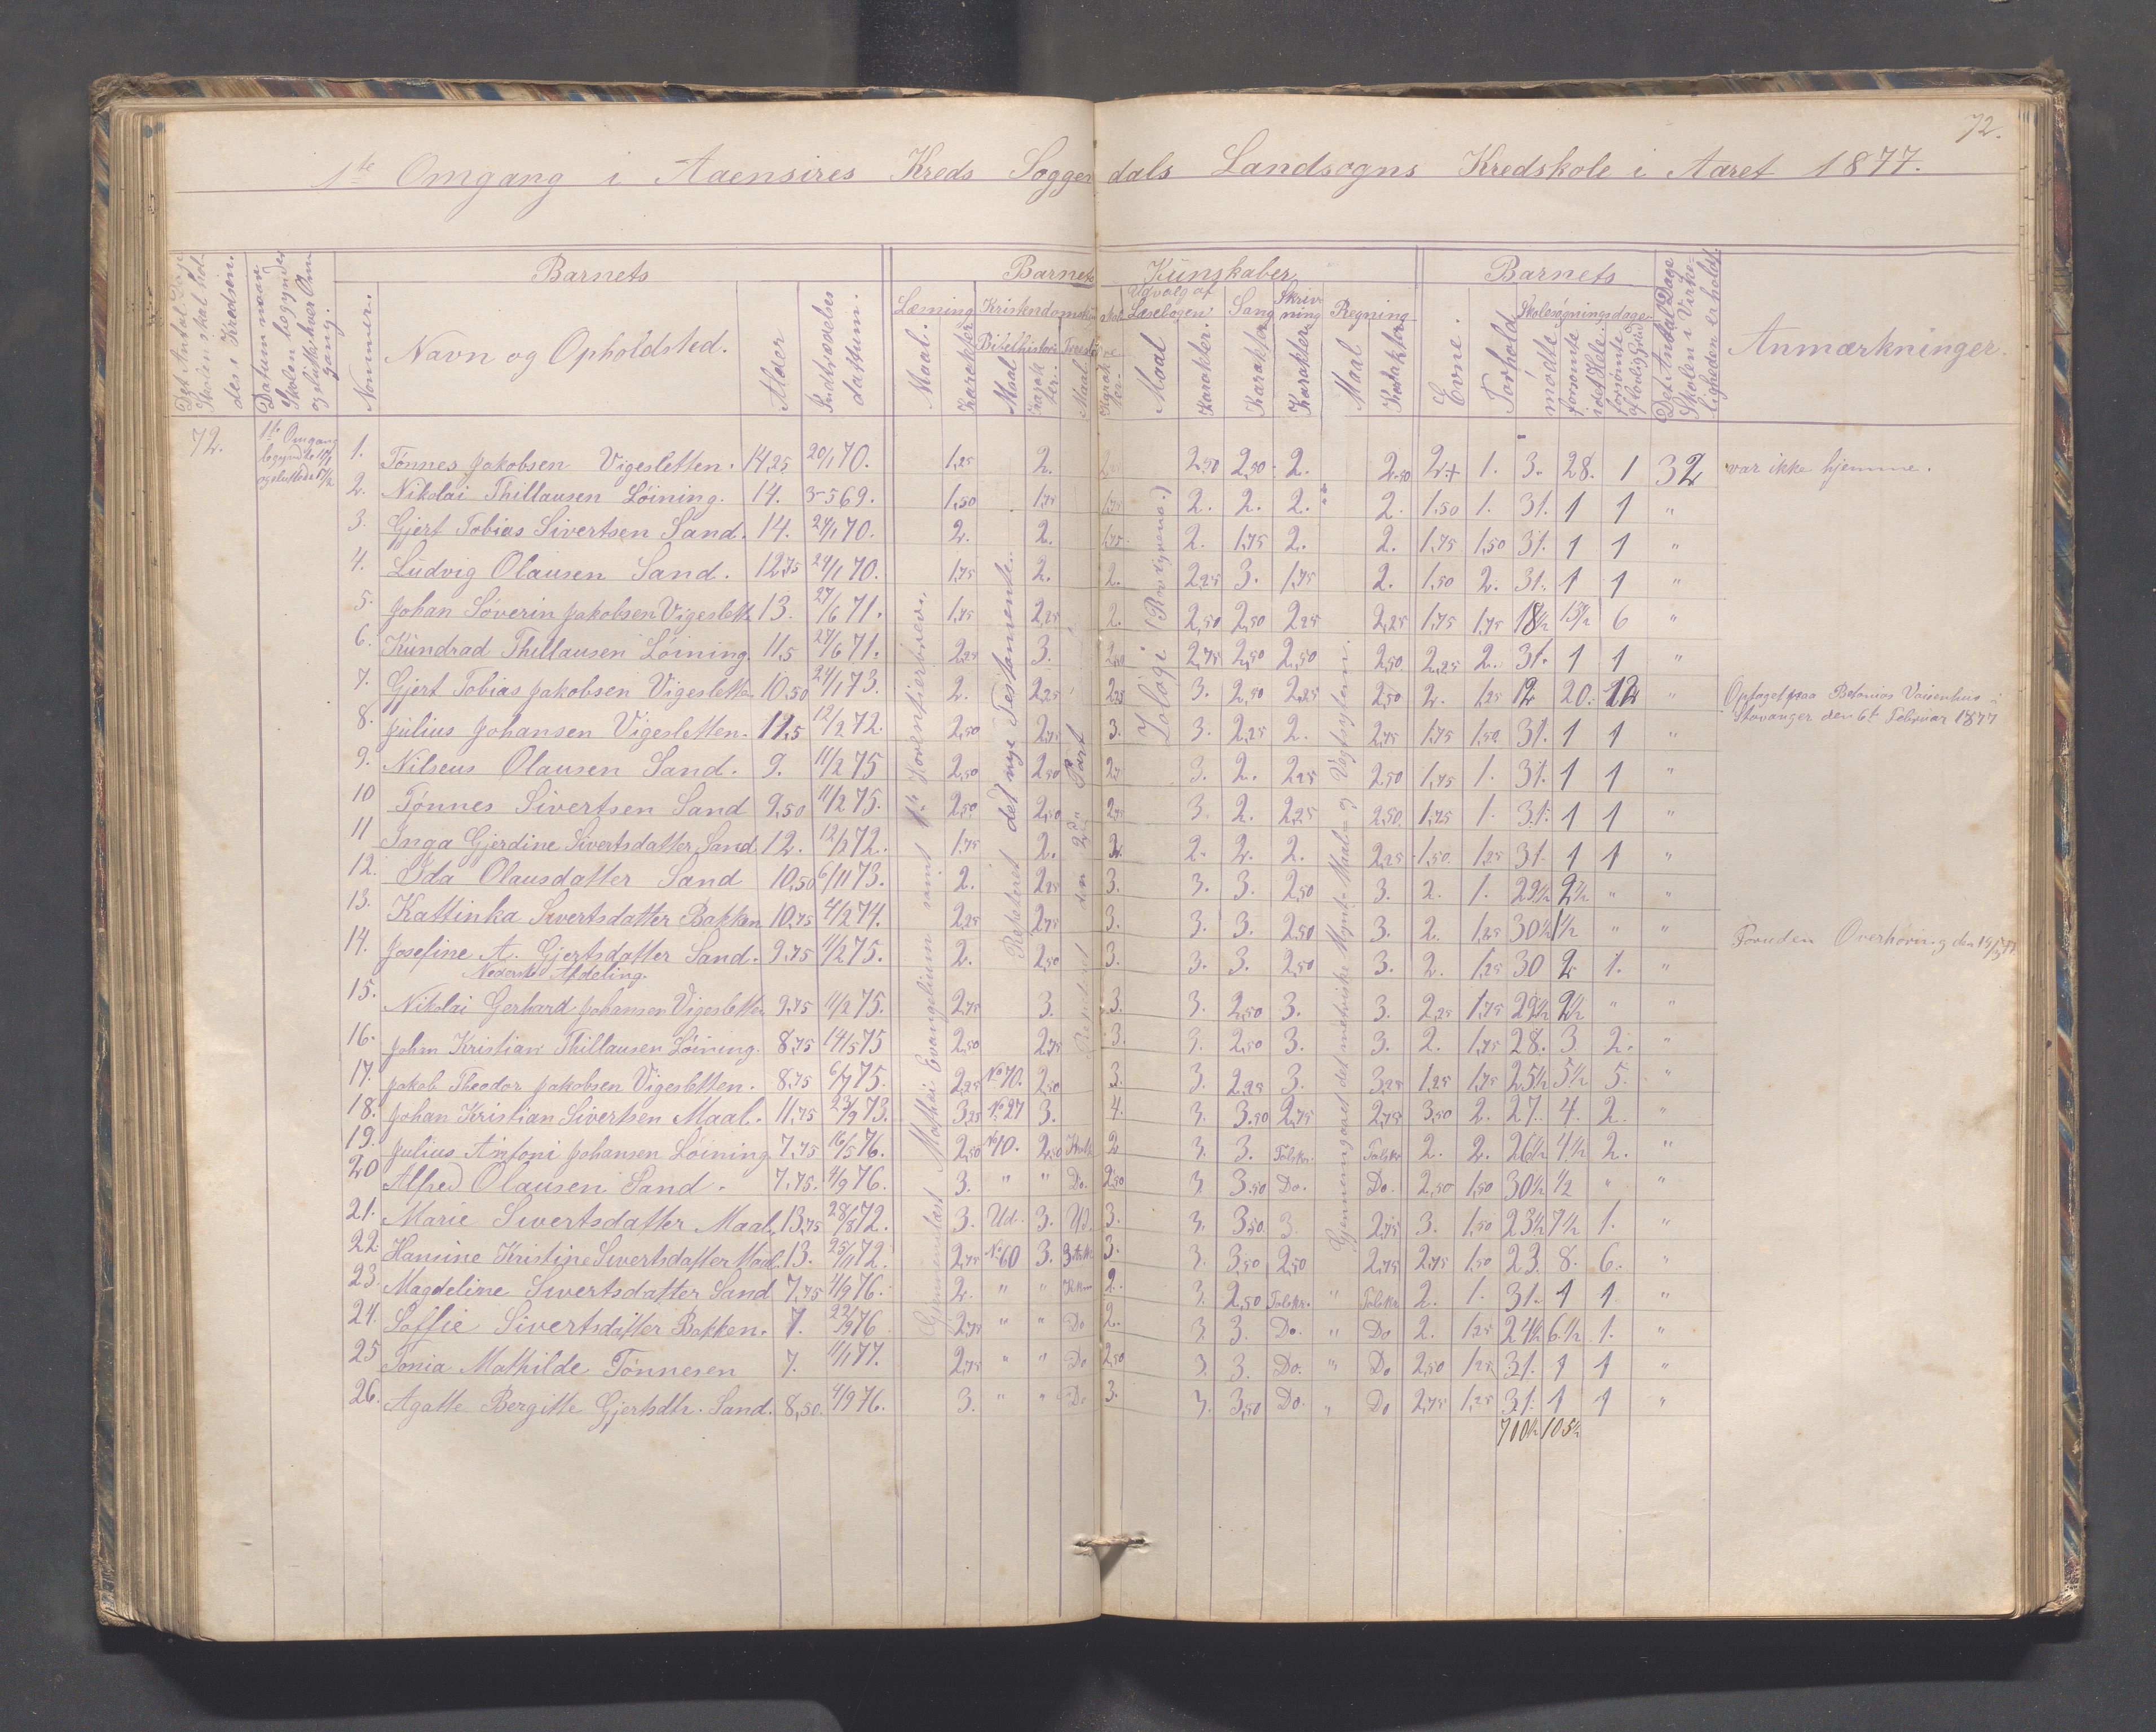 72.
1ste Omgang i Aaensires Kreds Soggendals Landsogns Kredskole i Aaret 1877.
Barnets
Barnets Kunskaber
Barnets
Nommer.
Navn og Opholdsted.
Alder
Indtrædelses dattum.
Læsning
Maal.
Karakter
Bibelhistorie
Maal
Udvalg af Læsebogen
Maal
Karakter.
Sang
Karakter
Skrivning
Karakter
Regning
Maal
Karakter
Evne.
Forhold
Skolesøgningsdage
mødte
forsømte i det Hele
Det Antal Dage Skolen i Virkeligheden er holdt.
Anmærkninger.
72.
1ste Omgang
1. Tønnes Jakobsen Vigesletten. 14,25 20/1 70. 1,25 2. 2,50 2,50 2. 2,50 2+ 1. 3. 28. 1 32 var ikke hjemme.
2. Nikolai Thillausen Løining. 14. 3-5 69. 1,50 1,75 1,75 2. 2. 2. 2. 1,50 1. 31. 1 1 "
3. Gjert Tobias Sivertsen Sand. 14. 27/1 70. 2. 2. 1,75 2. 1,75 2. 2. 1,75 1,50 31. 1 1 "
4. Ludvig Olausen Sand. 12,75 24/1 70. 1,75 2. 2. 2,25 3. 1,75 2. 1,50 2. 31. 1 1 "
5. Johan Søverin Jakobsen Vigeslett 13. 27/6 71. 1,75 2,25 2. 2,50 2,50 2,25 2,25 1,75 1,75 18½ 13½ 6 "
6. Kundrad Thillausen Løining. 11,5 27/6 71. 2,25 3. 2,50 2,75 2,50 2,50 2,50 2,25 2. 31. 1 1 "
7. Gjert Tobias Jakobsen Vigesletten 10,50 24/1 73. 2. 2,25 2,25 3. 2,50 2,25 2,50 2. 1,25 12 20. 12 " Optaget paa Betanias Vaisenhus i
Stavanger den 6te Februar 1877
8. Julius Johansen Vigesletten. 11,5 12/2 72. 2,50 2,75 3. 3. 2,25 2. 2,75 1,75 1,50 31. 1 1 "
9. Nilseus Olausen Sand. 9. 11/2 75 2,50 2,50 3. 2. 2,25 2,50 1,75 1. 31. 1 1 "
10 Tønnes Sivertsen Sand 9,50 11/2 75. 2,50 2,50 2,75 3. 2. 2,25 2,50. 1,75 1. 31. 1 1 "
11 Inga Gjerdine Sivertsdatter Sand. 12. 12/2 72. 1,75 2. 2. 2. 2. 2. 2,25 1,50. 1,25 31. 1 1 "
12. Ida Olausdatter Sand 10,50 6/11 73. 2. 2,25 3. 3. 3. 2,50 3. 2. 1. 29½ 2½ " "
13. Kattinka Sivertsdatter Bakken 10,75 4/2 74. 2,25 2,75 3. 3. 3. 2,50 3. 2. 1,25 30½ 1½ " "
14. Josefine A. Gjertsdatter Sand. 9,75 11/2 75. 2. 2,50 3. 3. 3. 2,50 3. 2. 1,25 30 2 1. "
Nederste Afdeling.
15. Nikolai Gerhard Johansen Vigesletten 9,75 11/2 75. 2,75 3. 3. 3. 2,50 3. 3. 2,25 1,75 29½ 2½ " "
16. Johan Kristian Thillausen Løining. 8,75 14/5 75 2,50 2,75 3. 3. 2,50 3. 3. 2. 1,75 28. 3 2. "
17. Jakob Theodor Jakobsen Vigesletten. 8,75 6/7 75. 2,25 No 70. 2,50 3. 3. 2,25 3. 3,25 1,25 1,75 25½ 5½ 5. "
18. Johan Kristian Sivertsen Maal. 11,75 23/9 73. 3,25 No 27 3. 4. 3. 3,50 2,75 2,75 3,50 2. 27. 4. 2. "
19. Julius Antoni Johansen Løining 7,75 16/5 76. 2,50 2,50 2 3. 3. Talskr. Talskr 2. 2. 26½ 4½ 2. "
20 Alfred Olausen Sand. 7,75. 4/9 76. 3. " " Do. 2,50 3. 3,50 Do. Do. 2,50 1,50 30½ ½ " "
21. Marie Sivertsdatter Maal, 13,75 28/8 72. 3. Ud. 3. Ud. 3. 3. 3,50 3. 2,75 3. 1,50 23½ 7½ 1. "
22. Hansine Kristine Sivertsdatter Maal. 13. 25/11 72. 2,75 No 60 3. 3. 3. 3,50 2,50 2,75 2,75 1,50 23. 8. 6. "
23. Magdeline Sivertsdatter Sand 7,75 4/9 76. 2. " " 2. 3. 2,50 Talskr. " Talskr 2. 1. 31. 1 1 "
24. Soffie Sivertsdatter Bakken. 7. 22/9 76 2,75 " " Do 2. 3. 3. Do. " Do 2. 1,25 24½ 6½ 1. "
25 Tonia Mathilde Tønnesen 7. 11/1 77. 2,75 " " Do 2,50 3. 3. Do. " Do 2,50 1,25 31. 1 1 "
26. Agatte Bergitte Gjertsdtr. Sand. 8,50. 4/9 76. 3. " " Do 3. 3. 3,50 Do. " Do 2,75 1,25 31. 1 1 "
710½ 105½
Gjennemlæst Mathæi Evangelium samt
Repeteret det nye Testamente.
Repeteret den 2den Part
Zologi (Rovdyrene.)
Gjennemgaaet det metriske Mynt- Maal- og Vegtsystem.
Foruden Overhøring den